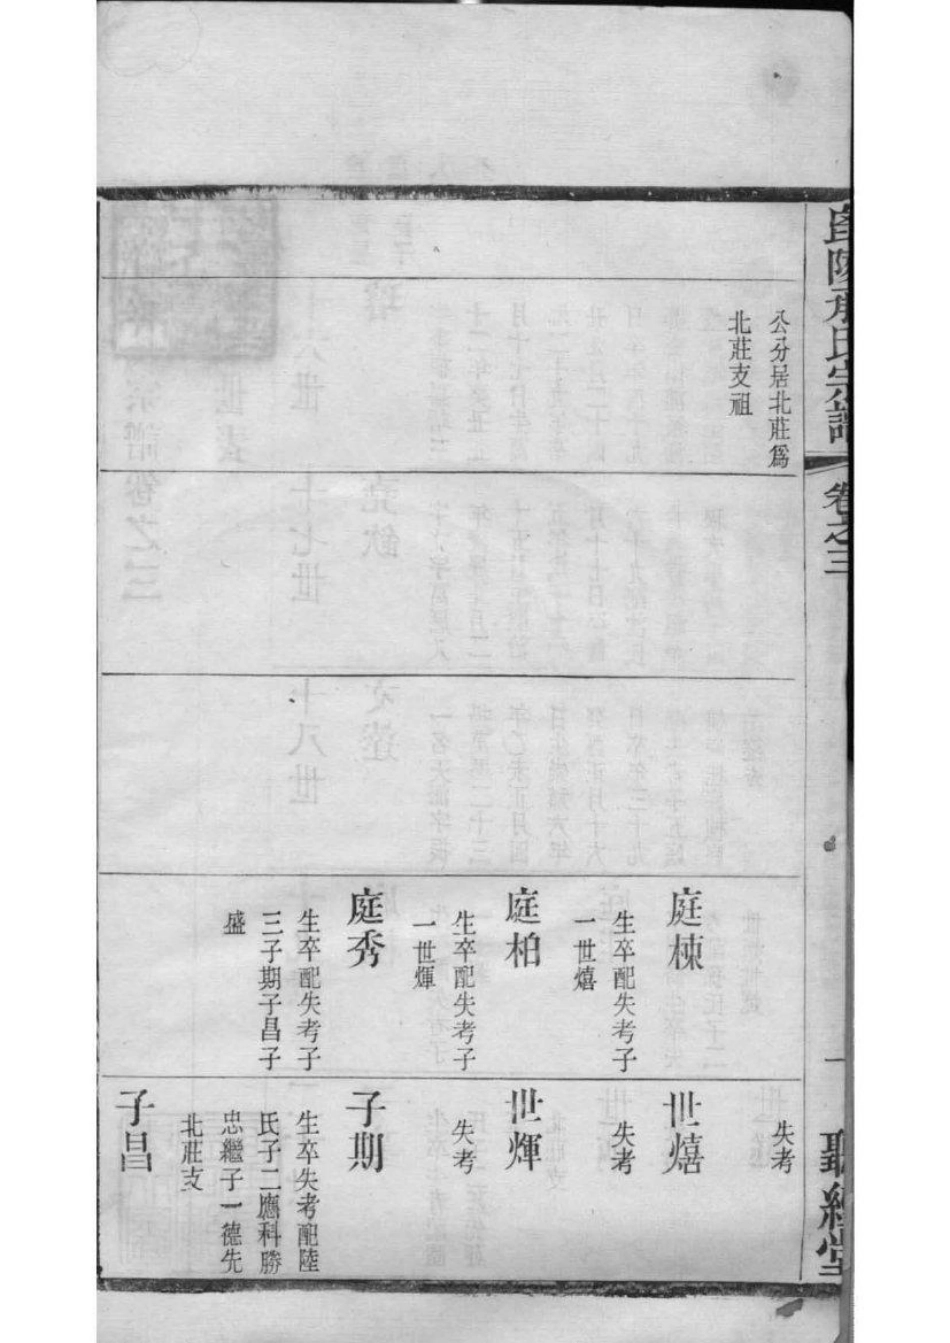 毘陵承氏宗譜
卷之三
一
聽經堂
公分居北莊爲
北莊支祖
庭棟
生卒配失考子
一世熺
庭柏
生卒配失考子
一世煇
庭秀
生卒配失考子
三子期子昌子
盛
失考
世熺
失考
世煇
失考
子期
生卒失考配陸
氏子二應科勝
忠繼子一德先
北莊支
子昌